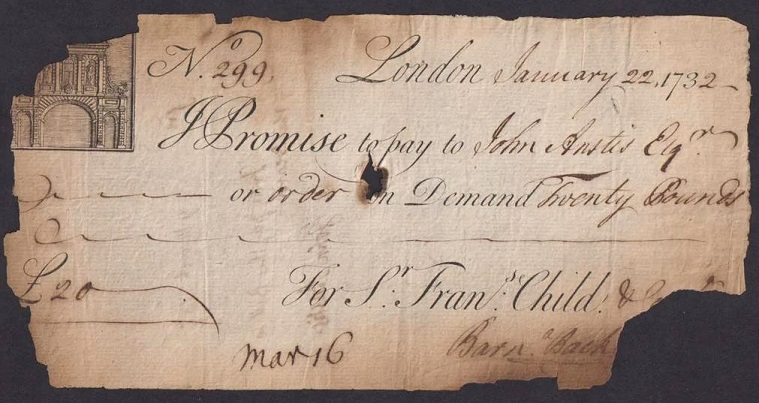 No. 299. London January 22, 1732
I Promise to pay to John Anstis Esqr.
or order on Demand Twenty Pounds
£20 For Sr. Frans. Child. &
mar 16 Barna. Back